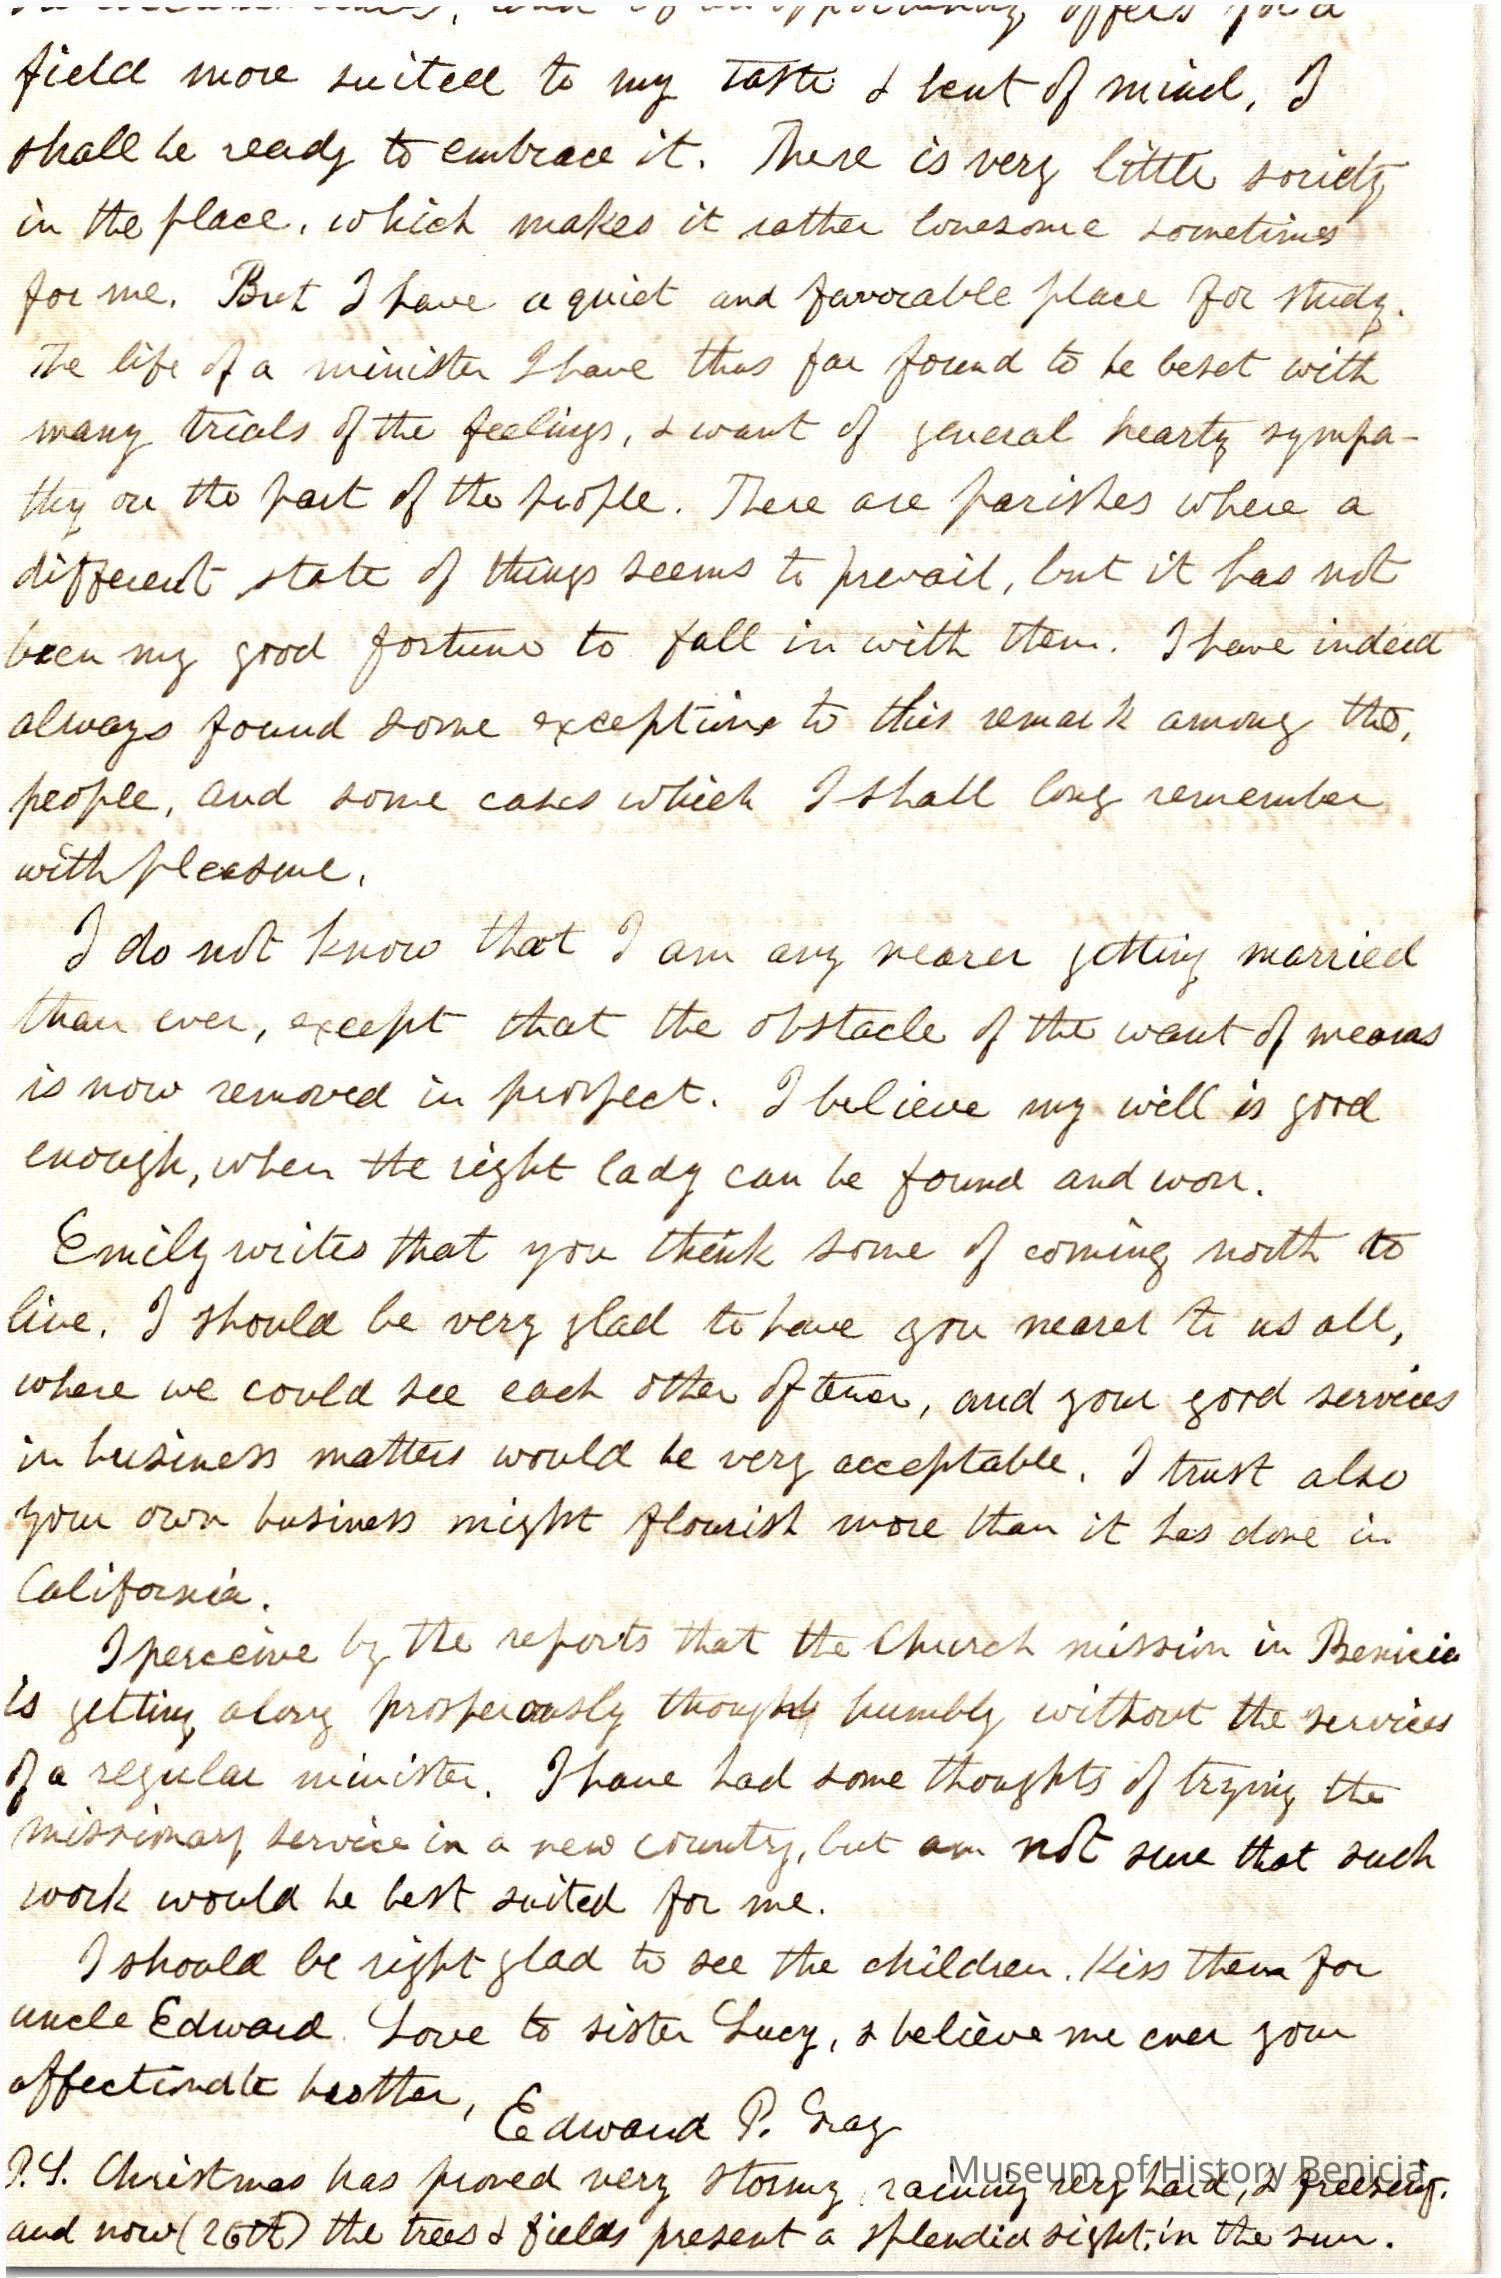 opportunity offers for a
field more suited to my taste & bent of mind, I
shall be ready to embrace it. There is very little society
in the place, which makes it rather lonesome sometimes
for me. But I have a quiet and favorable place for study.
The life of a minister I have thus far found to be beset with
many trials of the feelings, & want of general hearty sympa-
thy on the part of the people. There are parishes where a
different state of things seems to prevail, but it has not
been my good fortune to fall in with them. I have indeed
always found some exceptions to this remark among the,
people, and some cases which I shall long remember
with pleasure.
I do not know that I am any nearer getting married
than ever, except that the obstacle of the want of means
is now removed in prospect. I believe my will is good
enough, when the right lady can be found and won.
Emily writes that you think some of coming north to
live. I should be very glad to have you nearer to us all,
where we could see each other oftener, and your good services
in business matters would be very acceptable. I trust also
your own business might flourish more than it has done in
California.
I perceive by the reports that the Church mission in Benicia
is getting along prosperously though humbly without the services
of a regular minister. I have had some thoughts of trying the
missionary service in a new country, but am not sure that such
work would be best suited for me.
I should be right glad to see the children. Kiss them for
uncle Edward. Love to sister Lucy, & believe me ever your
affectionate brother,
Edward P. Gray
P.S. Christmas has proved very stormy, raining very hard, & freezing.
and now (26th) the trees & fields present a splendid sight in the sun.
Museum of History Benicia